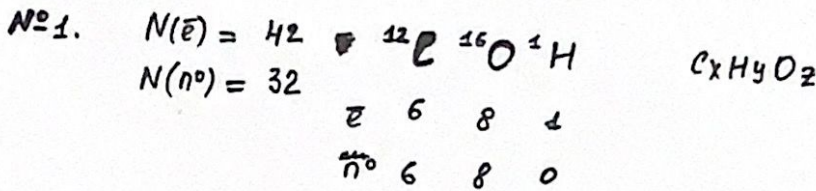 №1. N(ē) = 42 ¹²C ¹⁶O ¹H CxHyOz
N(n⁰) = 32
ē 6 8 1
n⁰ 6 8 0